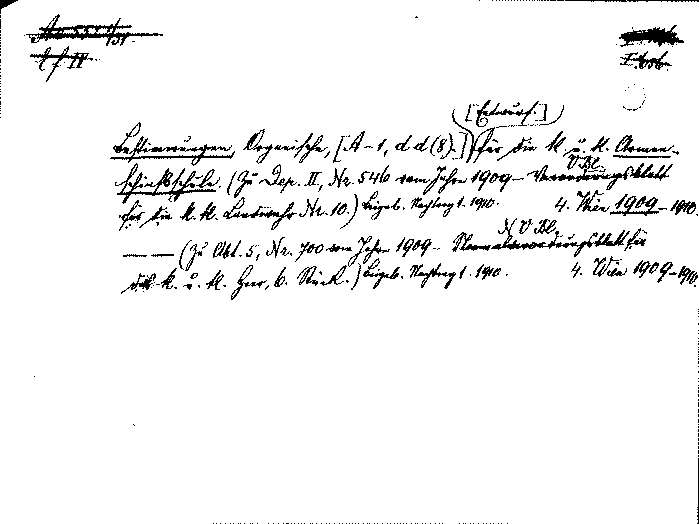 [Entwurf.]
Bestimmungen, Organische, [A-1, d d (8).] für die k. u. k. Armee-
schießschule. (Zu Dep. II, Nr. 546 vom Jahre 1909 – Verordnungsblatt
V Bl.
für die k. k. Landwehr Nr. 10.) Beigeb. Nachtrag 1. 1910. 4. Wien 1909-1910.
N V Bl.
—— (Zu Abt. 5, Nr. 700 vom Jahre 1909 – Normalverordnungsblatt für
das k. u. k. Heer, 6. Stück.) Beigeb. Nachtrag 1. 1910. 4. Wien 1909-1910.